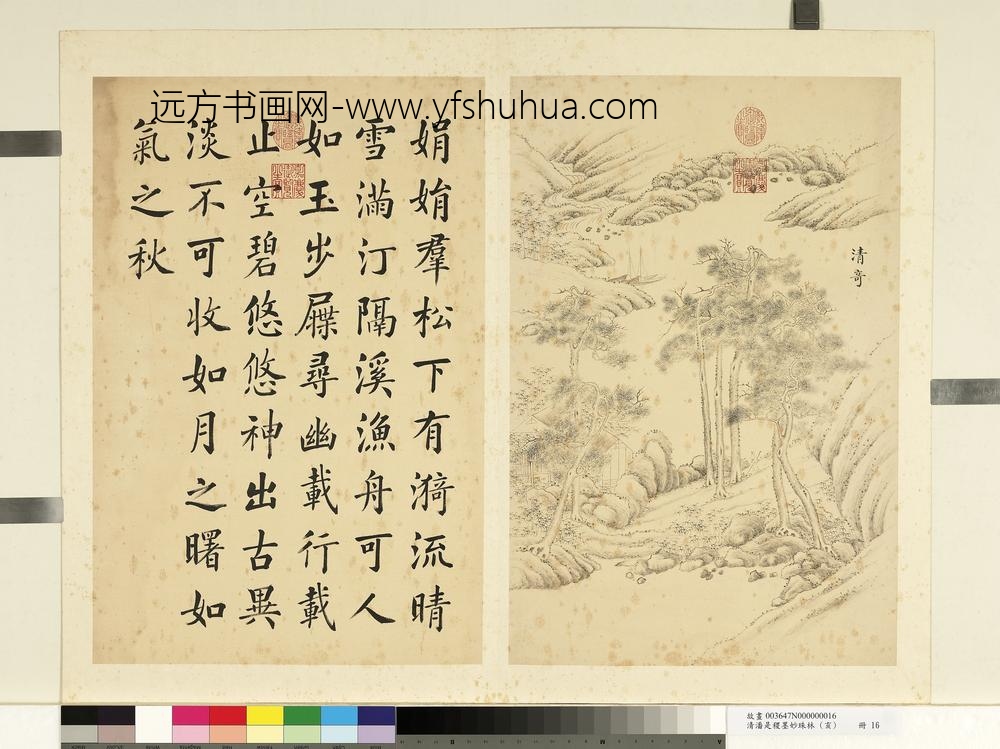 远方书画网-www.yfshuhua.com
清奇
娟娟羣松下有漪流晴
雪滿汀隔溪漁舟可人
如玉步屧尋幽載行載
止空碧悠悠神出古異
淡不可收如月之曙如
氣之秋
故畫 003647N000000016
清潘是稷墨妙珠林(亥) 冊 16